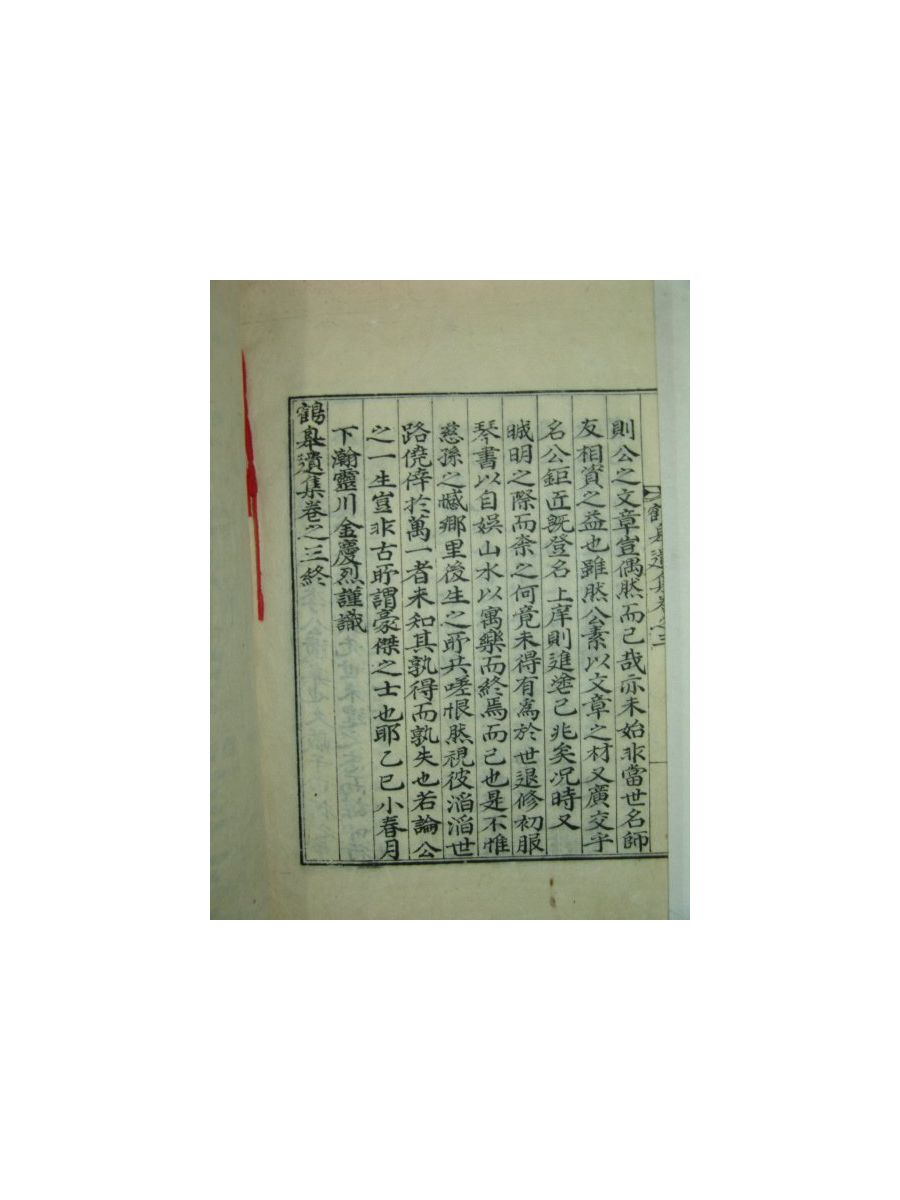 鶴臯遺集卷之三
則公之文章豈偶然而已哉亦未始非當世名師
友相資之益也雖然公素以文章之材又廣交乎
名公鉅匠既登名上庠則進塗已兆矣况時又
晠明之際而柰之何竟未得有爲於世退修初服
琴書以自娛山水以寓樂而終焉而已也是不惟
慈孫之憾鄉里後生之所共嗟恨然視彼滔滔世
路僥倖於萬一者未知其孰得而孰失也若論公
之一生豈非古所謂豪傑之士也耶乙巳小春月
下瀚靈川金慶烈謹識
鶴臯遺集卷之三終